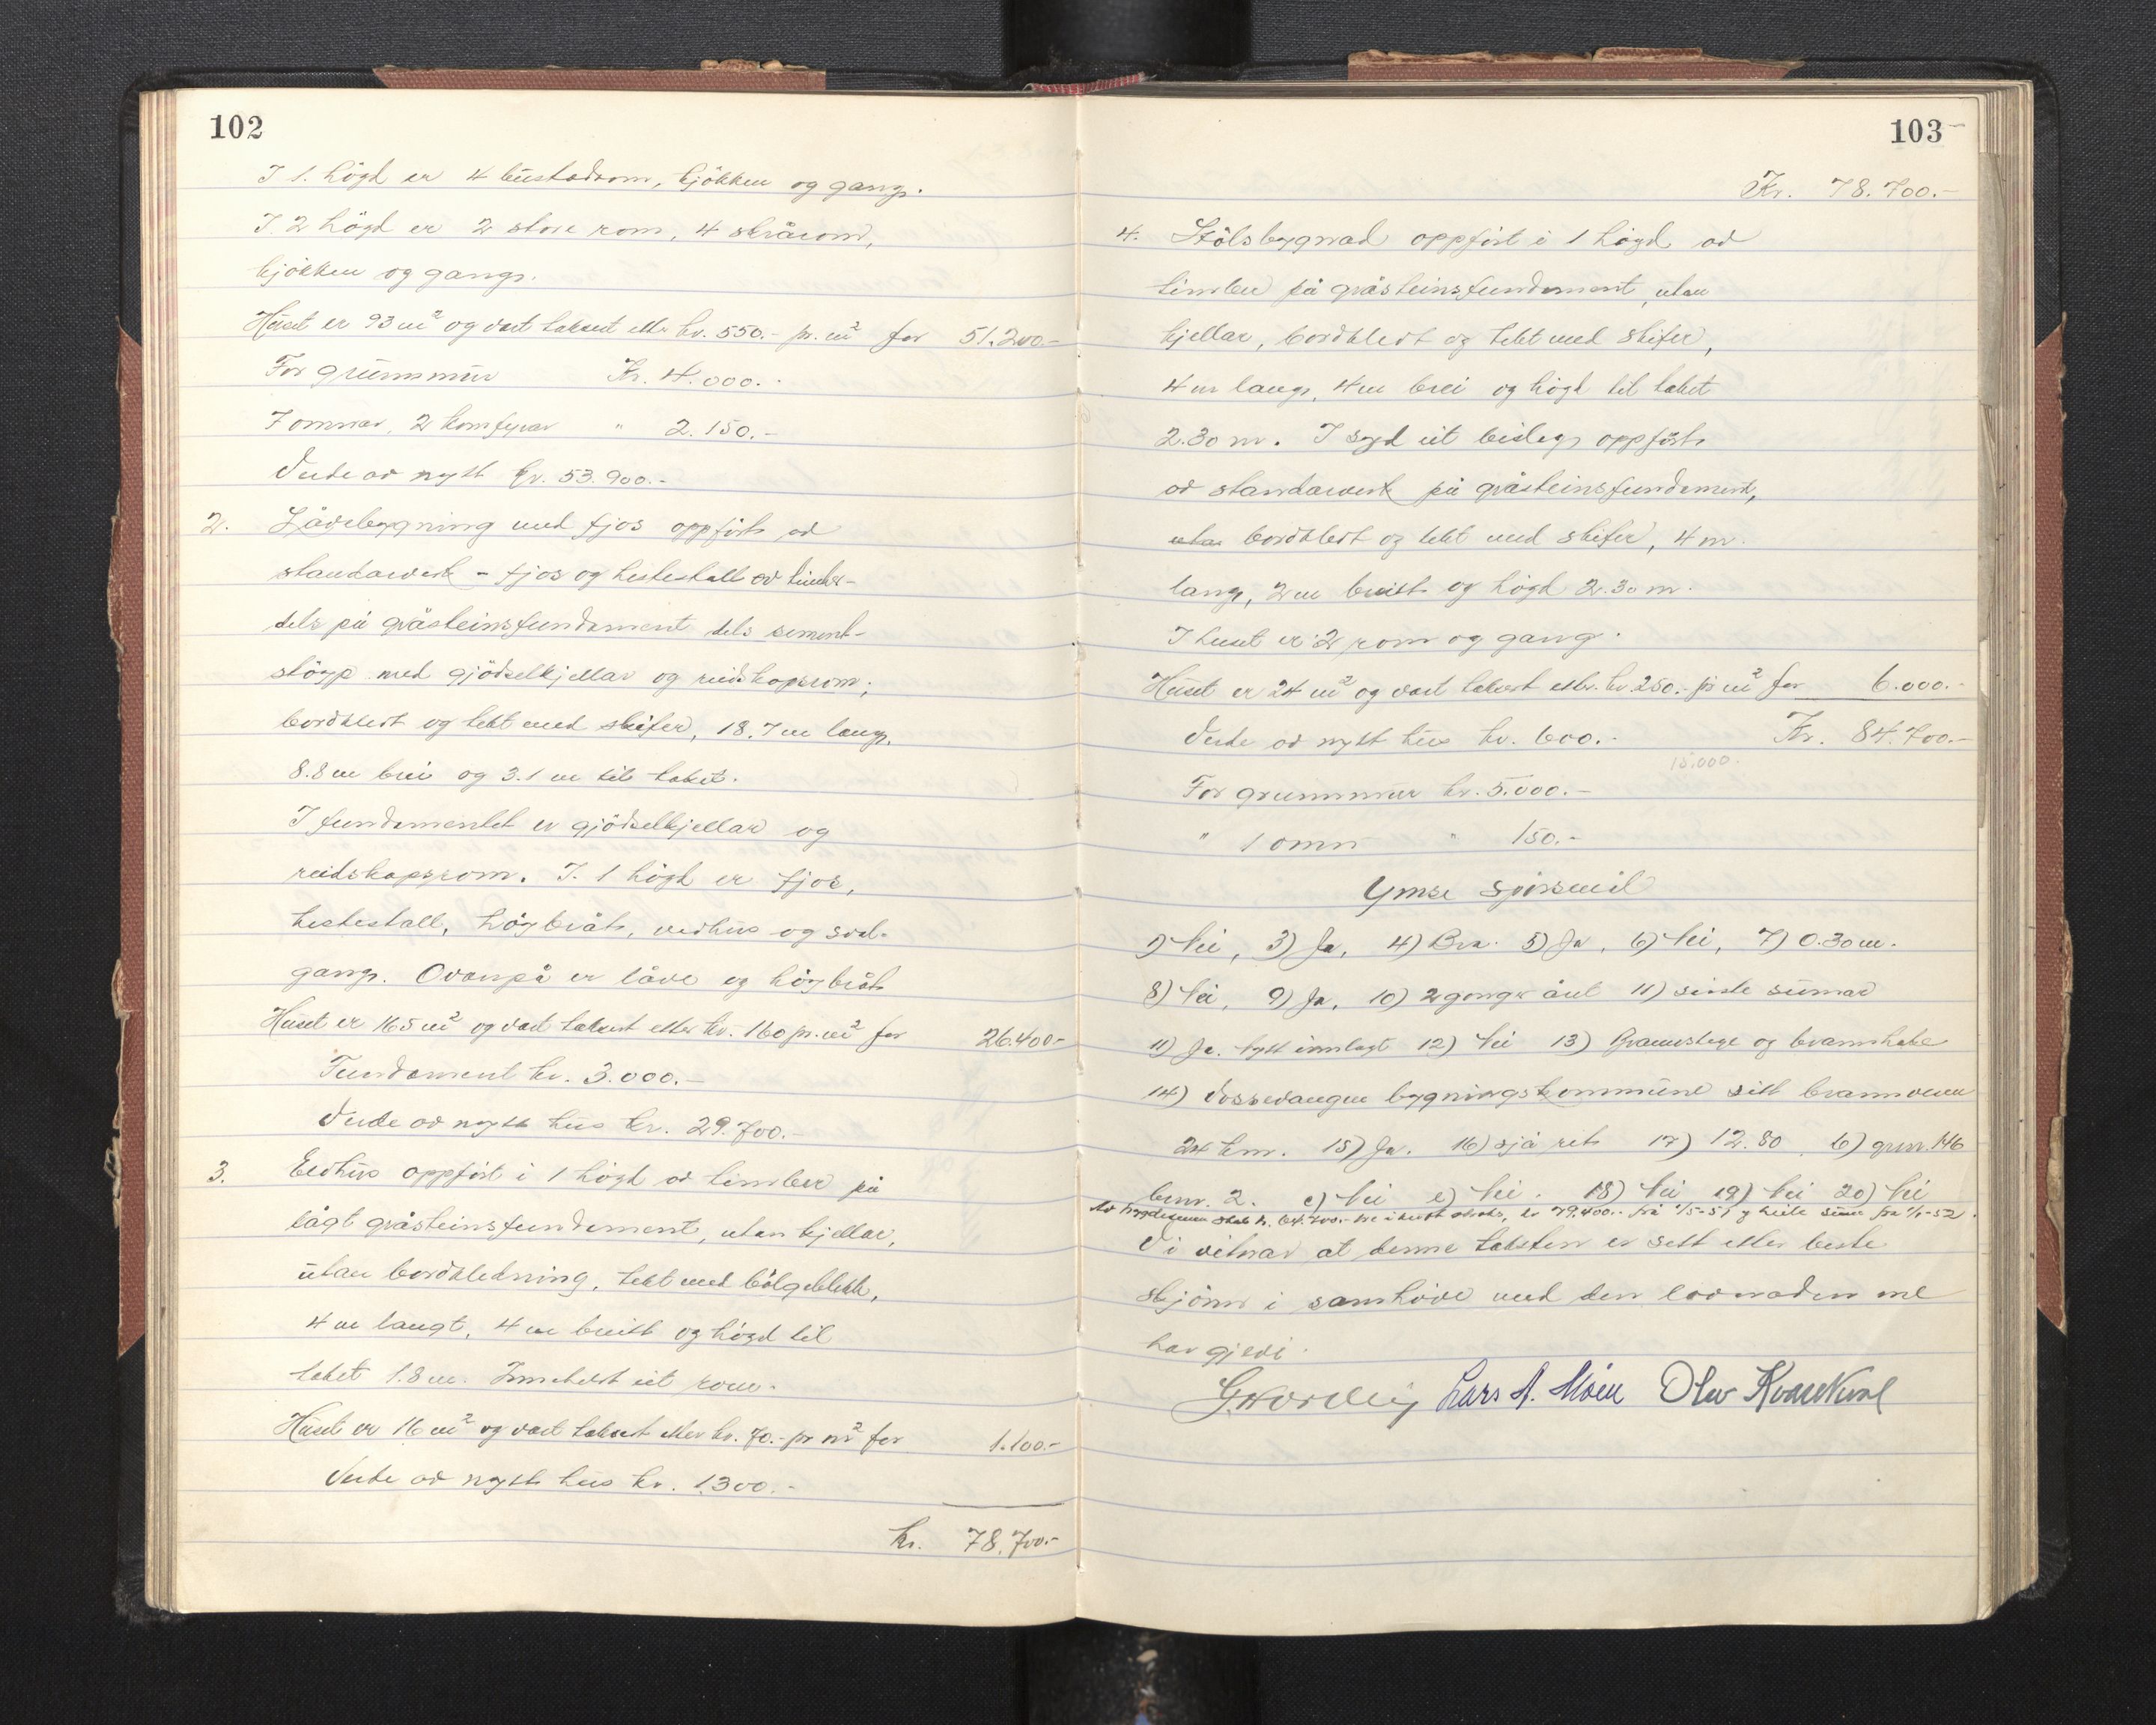 102
I 1. högd er 4 bustadrom, kjökken og gang.
I 2 högd er 2 store rom, 4 skrårom,
kjökken og gang.
Huset er 93 m² og vart taksert etter kr. 550.- pr. m² for 51.200.-
For grunnmur Kr. 4.000.-
7 omnar, 2 komfyrar " 2.150.-
Verde av nytt kr. 53.900.-
2. Lövebygning med fjos oppfört av
standarverk - fjos og hestestall av timber-
dels på gråsteinsfundament dels sement-
stöyp med gjödselkjellar og reidskapsrom;
bordkledt og tekt med skifer, 18.7 m lang,
8.8 m brei og 3.1 m til taket.
I fundamentet er gjödselkjellar og
reidskapsrom. I 1 högd er fjos,
hestestall, höybråt, vedhus og sval-
gang. Ovanpå er låve og höybråt
Huset er 165 m² og vart taksert etter kr. 160 pr. m² for 26.400.-
Fundament kr. 3.000.-
Verde av nytt hus kr. 29.700.-
3. Eldhus oppfört i 1 högd av timber på
lågt gråsteinsfundament, utan kjellar,
utan bordkledning, tekt med bölgeblekk,
4 m langt, 4 m breitt og högd til
taket 1.8 m. Inneheld eit rom.
Huset er 16 m² og vart taksert etter kr. 70.- pr m² for 1.100.-
Verde av nytt hus kr. 1.300.-
kr. 78.700.-
103
Kr. 78.700.-
4. Stölsbygnad oppfört i 1 högd av
timber på gråsteinsfundament, utan
kjellar, bordkledt og tekt med skifer,
4 m lang, 4 m brei og högd til taket
2.30 m. I syd eit bislag oppfört
av standarverk på gråsteinsfundament,
utan bordkledt og tekt med skifer, 4 m.
lang, 2 m breitt og högd 2.30 m.
I huset er 2 rom og gang.
Huset er 24 m² og vart taksert etter. kr. 250.- pr m² for 6.000.-
Verde av nytt hus kr. 600.- Kr. 84.700.-
15.000.
For grunnmur kr. 5.000.-
" 1 omn " 150.-
Ymse spörsmål
1) Nei, 3) Ja, 4) Bra. 5) Ja, 6) Nei, 7) 0.30 m.
8) Nei, 9) Ja, 10) 2 gonger året 11) siste sumar
11) Ja. Nytt innlagt 12) Nei 13) Brannstige og brannhake
14) Vossevangen bygningskommune sitt brannvesen
24 km. 15) Ja. 16) sjå rits 17) 12.80. b) gnr. 146
bnr. 2. c) Nei e) Nei. 18) Nei 19) Nei 20) Nei
kr. 79.400.- frå 1/5-51 og heile summen frå 1/1-52.
Vi vitnar at denne taksten er sett etter beste
skjönn i samhöve med den lovnaden me
har gjevi.
Lars A. Möen Olav